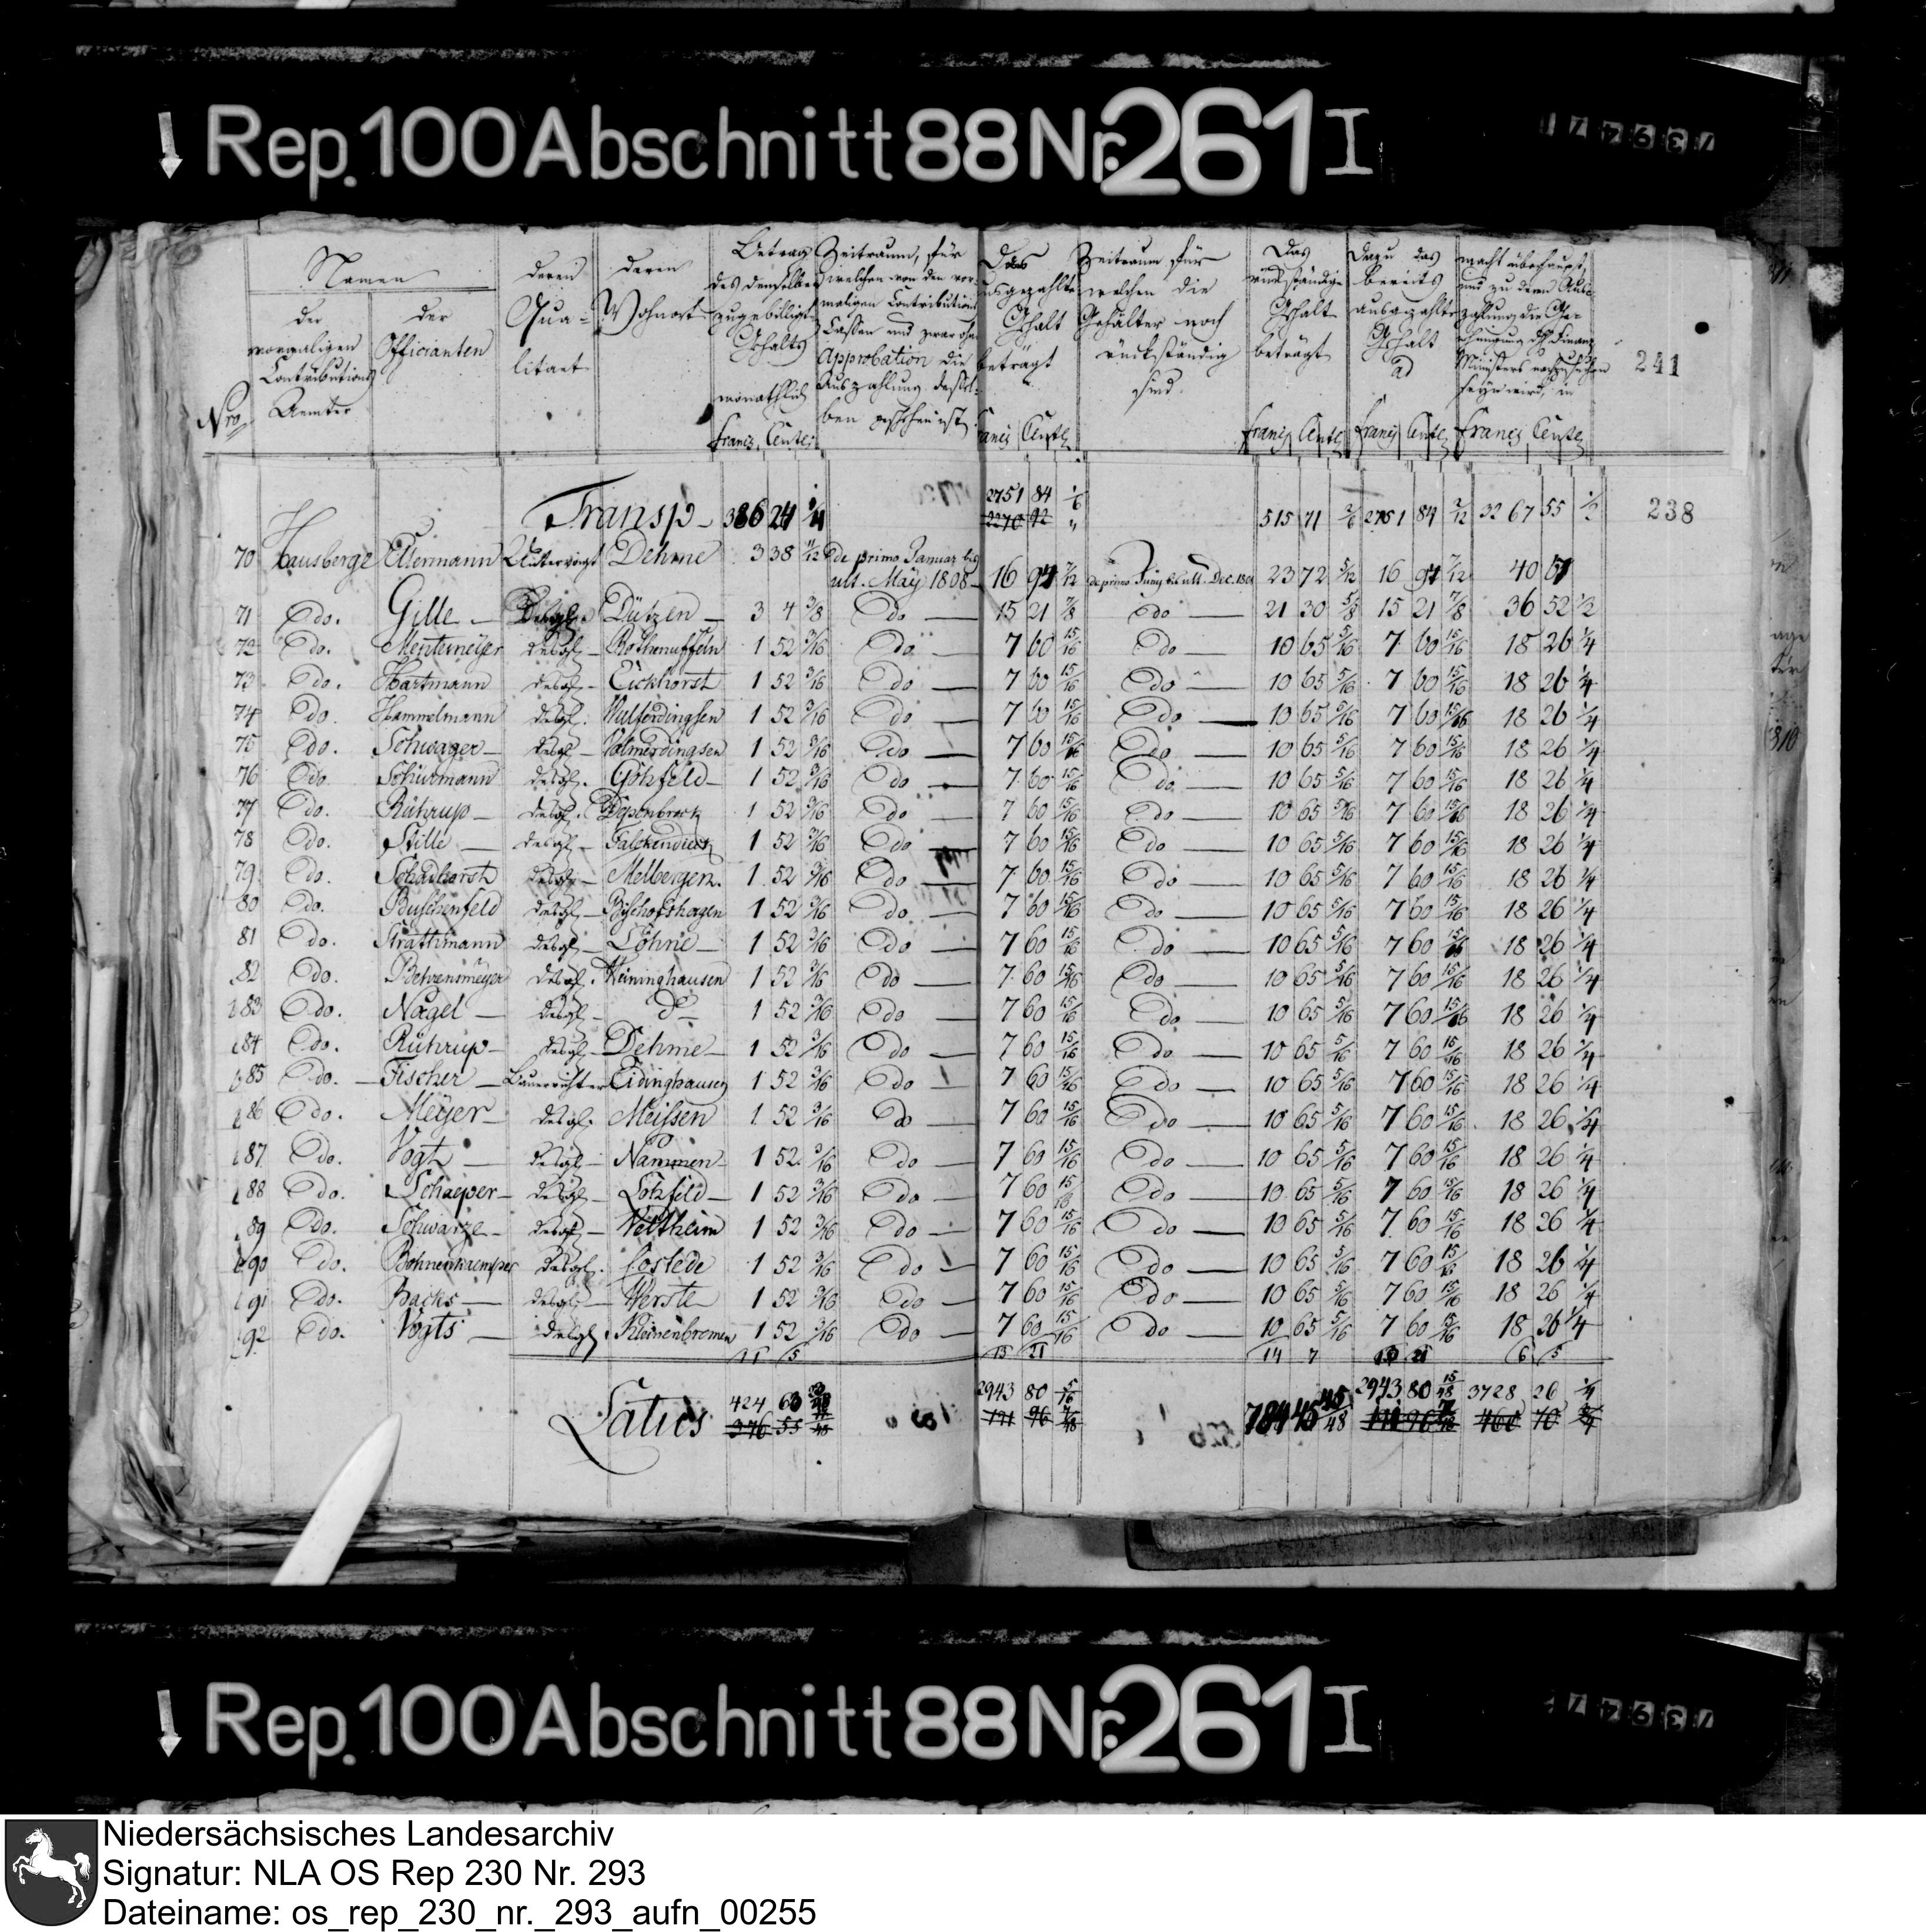 Rep. 100 Abschnitt 88 Nr. 261 I
Namen
der
vormaligen
Contributions
Aemter
der
Officianten
Nro
deren
Qua-
litaet
deren
Wohnort
Betrag
des demselben
zugebilligten
Gehalts
monathlich
Francs, Cents
Zeitraum, für
welchen von den vor-
maligen Contributions
Cassen und zwar ohne
Approbation die
Auszahlung dessel-
ben geschehen ist
Das
ausgezahlte
Gehalt
beträgt
Francs Cents
Zeitraum für
welchen die
Gehälter noch
rückständig
sind.
Das
rückständige
Gehalt
beträgt
Francs Cents
Dazu das
bereits
ausgezahlte
Gehalt
ad
Francs Cents
macht überhaupt,
und zu deren Aus-
zahlung die Ge-
nehmigung des Finanz
Ministers nachzusuchen
seyn wird, in
Francs Cents
241
Transp. 386 24 1/4 2751 84 1/6 515 71 2/6 2751 84 2/12 3267 55 1/2
2270 92 "
238
70 Hausberge Ellermann Untervoigt Dehme 3 38 11/12 de primo Januar bis
ult. May 1808 16 94 7/12 de primo Juny bis ult. Dec. 1808 23 72 5/12 16 94 7/12 40 67
71 do. Gille Desgl. Dützen 3 4 3/8 do 15 21 7/8 do 21 30 5/8 15 21 7/8 36 52 1/2
72 do. Mentemeÿer desgl. Rothenuffeln 1 52 3/16 do 7 60 15/16 do 10 65 5/16 7 60 15/16 18 26 1/4
73 do. Hartmann desgl. Eickhorst 1 52 3/16 do 7 60 15/16 do 10 65 5/16 7 60 15/16 18 26 1/4
74 do. Hammelmann desgl. Wulferdingsen 1 52 3/16 do 7 60 15/16 do 10 65 5/16 7 60 15/16 18 26 1/4
75 do. Schwager desgl. Volmerdingsen 1 52 3/16 do 7 60 15/16 do 10 65 5/16 7 60 15/16 18 26 1/4
76 do. Schürmann desgl. Gohfeld 1 52 3/16 do 7 60 15/16 do. 10 65 5/16 7 60 15/16 18 26 1/4
77 do. Rührup desgl. Depenbrock 1 52 3/16 do 7 60 15/16 do 10 65 5/16 7 60 15/16 18 26 1/4
78 do. Stille desgl. Falckendieck 1 52 3/16 do 7 60 15/16 do 10 65 5/16 7 60 15/16 18 26 1/4
79 do. Schadhorst desgl. Melbergen. 1 52 3/16 do 7 60 15/16 do 10 65 5/16 7 60 15/16 18 26 1/4
80 do. Buschenfeld desgl. Bischofshagen 1 52 3/16 do 7 60 15/16 do 10 65 5/16 7 60 15/16 18 26 1/4
81 do. Strathmann desgl. Löhne 1 52 3/16 do 7 60 15/16 do 10 65 5/16 7 60 15/16 18 26 1/4
82 do. Behrensmeyer desgl. Meininghausen 1 52 3/16 do 7 60 15/16 do 10 65 5/16 7 60 15/16 18 26 1/4
83 do. Nagel desgl. do 1 52 3/16 do 7 60 15/16 do 10 65 5/16 7 60 15/16 18 26 1/4
84 do. Rührup desgl. Dehme 1 52 3/16 do 7 60 15/16 do 10 65 5/16 7 60 15/16 18 26 1/4
85 do. Fischer Bauerrichter Eidinghausen 1 52 3/16 do 7 60 15/16 do 10 65 5/16 7 60 15/16 18 26 1/4
86 do. Meÿer desgl. Meissen 1 52 3/16 do 7 60 15/16 do 10 65 5/16 7 60 15/16 18 26 1/4
87 do. Vogt desgl. Nammen 1 52 3/16 do 7 60 15/16 do 10 65 5/16 7 60 15/16 18 26 1/4
88 do. Schaeper desgl. Lohfeld 1 52 3/16 do 7 60 15/16 do 10 65 5/16 7 60 15/16 18 26 1/4
89 do. Schwarze desgl. Veltheim 1 52 3/16 do 7 60 15/16 do 10 65 5/16 7 60 15/16 18 26 1/4
90 do. Bohnenkaemper desgl. Costede 1 52 3/16 do 7 60 15/16 do 10 65 5/16 7 60 15/16 18 26 1/4
91 do. Backs desgl. Werste 1 52 3/16 do 7 60 15/16 do 10 65 5/16 7 60 15/16 18 26 1/4
92 do. Vogts desgl. Kleinenbremen 1 52 3/16 do 7 60 15/16 do 10 65 5/16 7 60 15/16 18 26 1/4
11 5 15 21 14 7 6 5
Latus 424 63 2943 80 5/16 784 45 45/48 2943 80 15/48 3728 26 1/4
376 55 171 96 460 70 3/4
Rep. 100 Abschnitt 88 Nr. 261 I
Niedersächsisches Landesarchiv
Signatur: NLA OS Rep 230 Nr. 293
Dateiname: os_rep_230_nr._293_aufn_00255